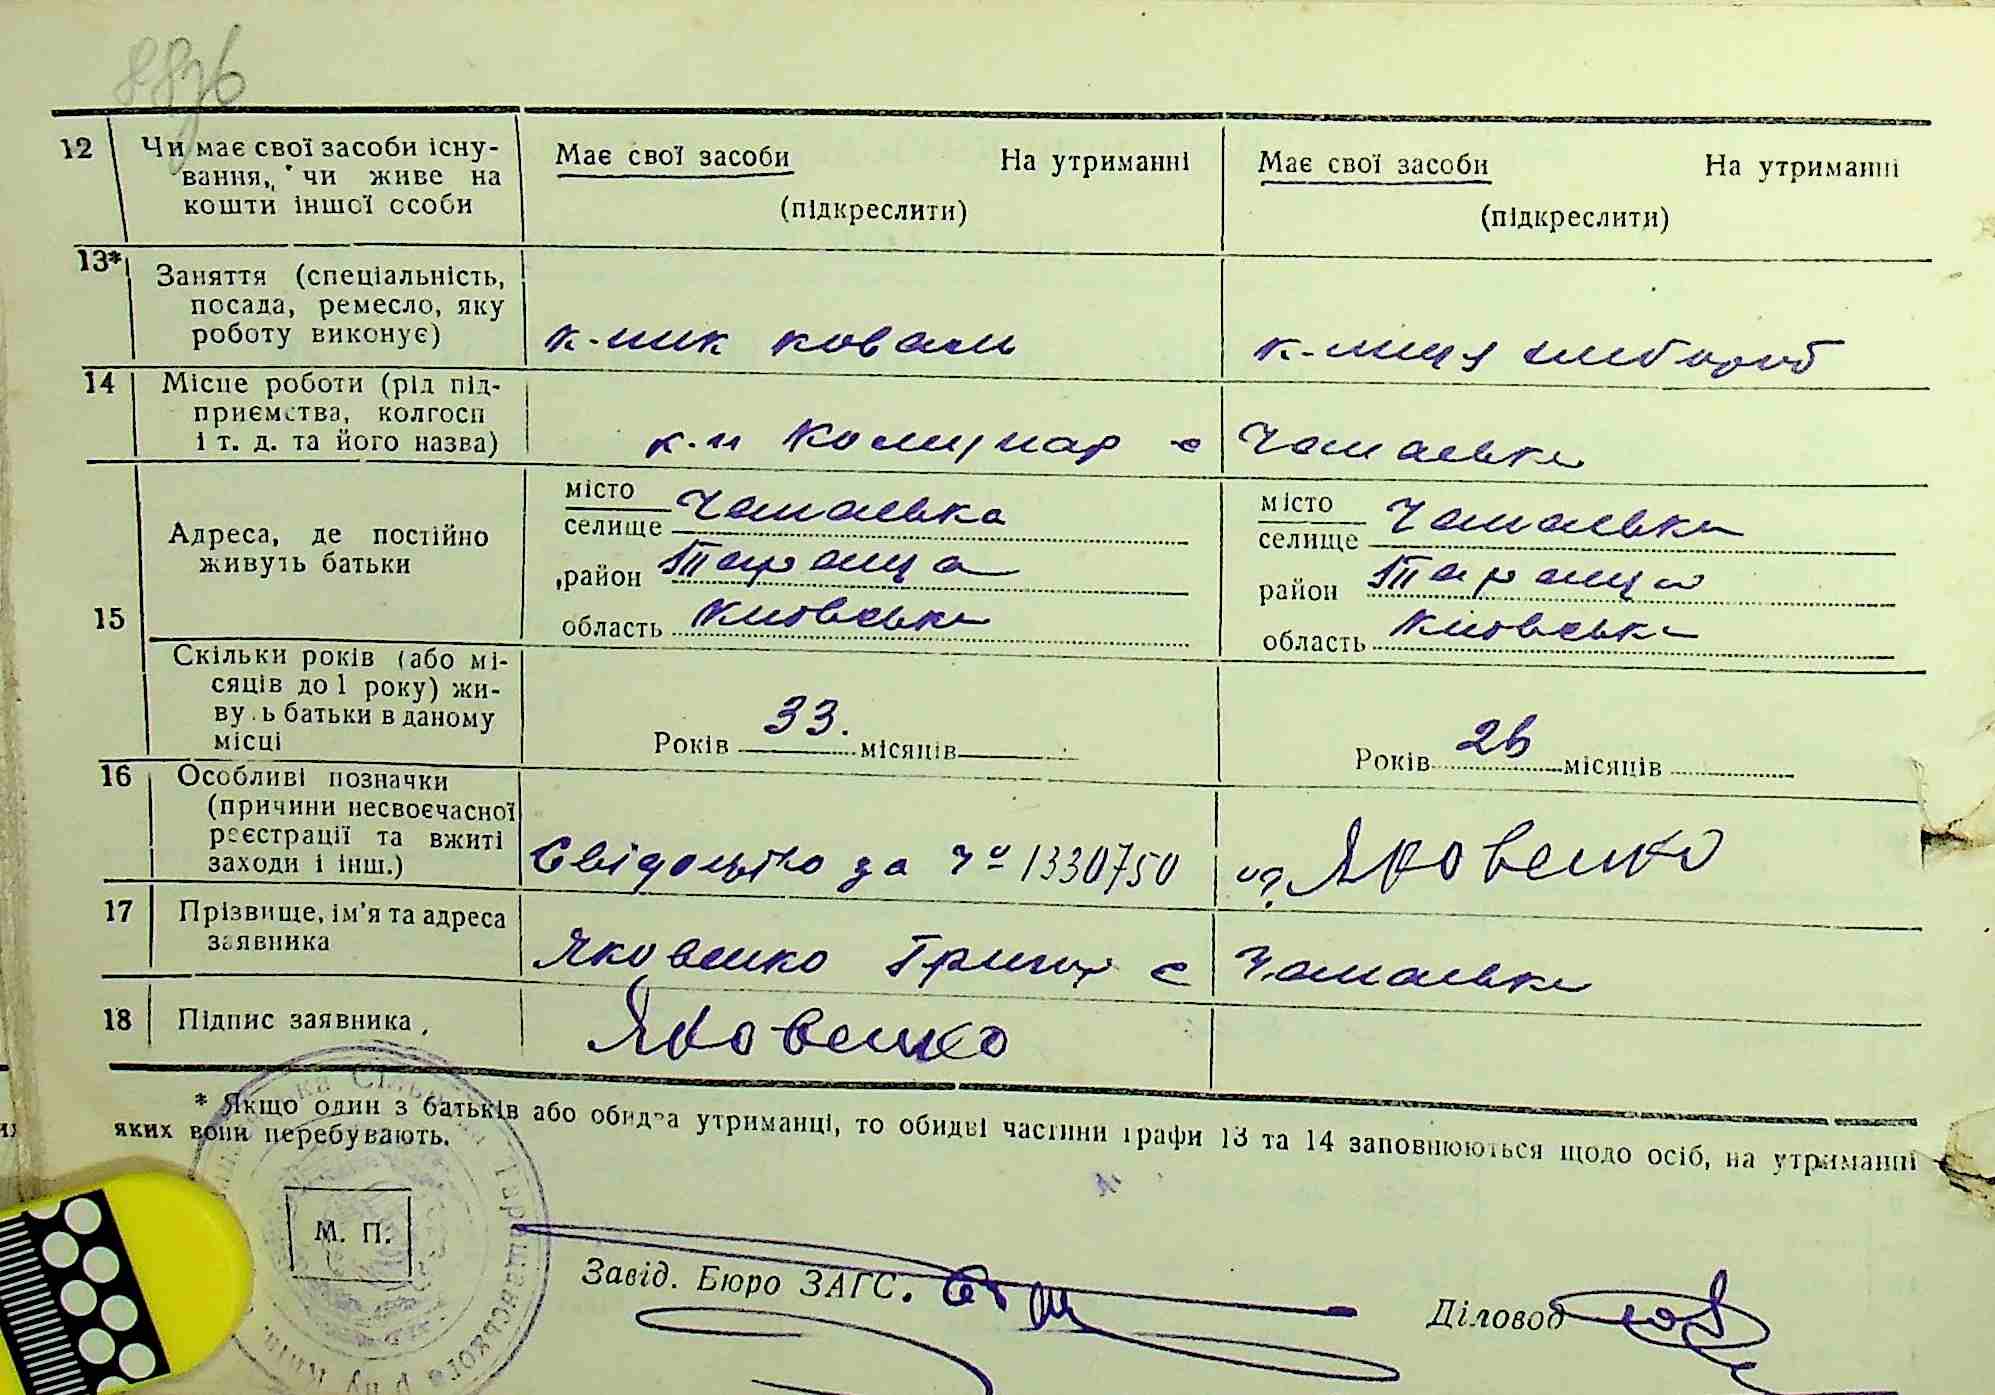 8876
12 Чи має свої засоби існу-
вання, чи живе на
кошти іншої особи
Має свої засоби На утриманні
(підкреслити)
Має свої засоби На утриманні
(підкреслити)
13* Заняття (спеціальність,
посада, ремесло, яку
роботу виконує)
к-ник коваль
к-ниця хлібороб
14 Місце роботи (рід під-
приємства, колгосп
і т. д. та його назва)
к-п Комунар с Чапаєвка
15 Адреса, де постійно
живуть батьки
місто
селище Чапаєвка
район Тараща
область Київська
місто
селище Чапаєвка
район Тараща
область Київська
Скільки років (або мі-
сяців до 1 року) жи-
вуть батьки в даному
місці
Років 33. місяців
Років 26 місяців
16 Особливі позначки
(причини несвоєчасної
реєстрації та вжиті
заходи і інш.)
Свідоцтво за № 1330750
Яковенко
17 Прізвище, ім'я та адреса
заявника
Яковенко Григор с Чапаєвка
18 Підпис заявника
Яковенко
* Якщо один з батьків або обидва утриманні, то обидві частини графи 13 та 14 заповнюються щодо осіб, на утриманні
яких вони перебувають.
М. П.
Сільська Таращанського р-ну
Завід. Бюро ЗАГС.
Діловод